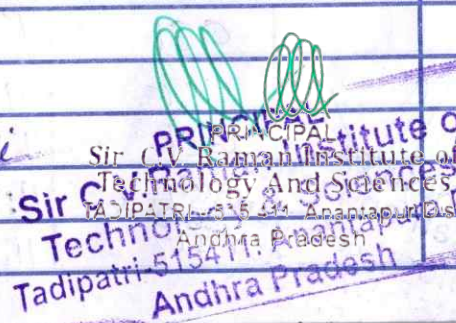 PRINCIPAL
Sir C.V. Raman Institute of
Technology And Sciences
TADIPATRI-515 411. Anantapur Dist
Andhra Pradesh
PRINCIPAL
Sir C.V. Raman Institute of
Technology & Sciences
Tadipatri-515411. Anantapur
Andhra Pradesh